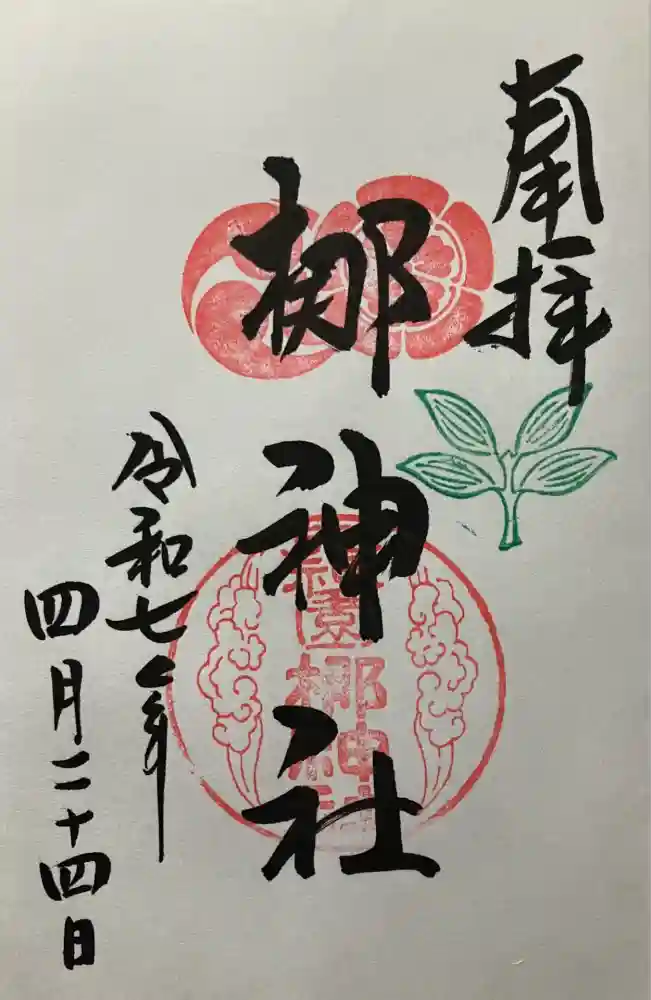 奉拝
梛神社
元祇園
梛神社
令和七年
四月二十四日